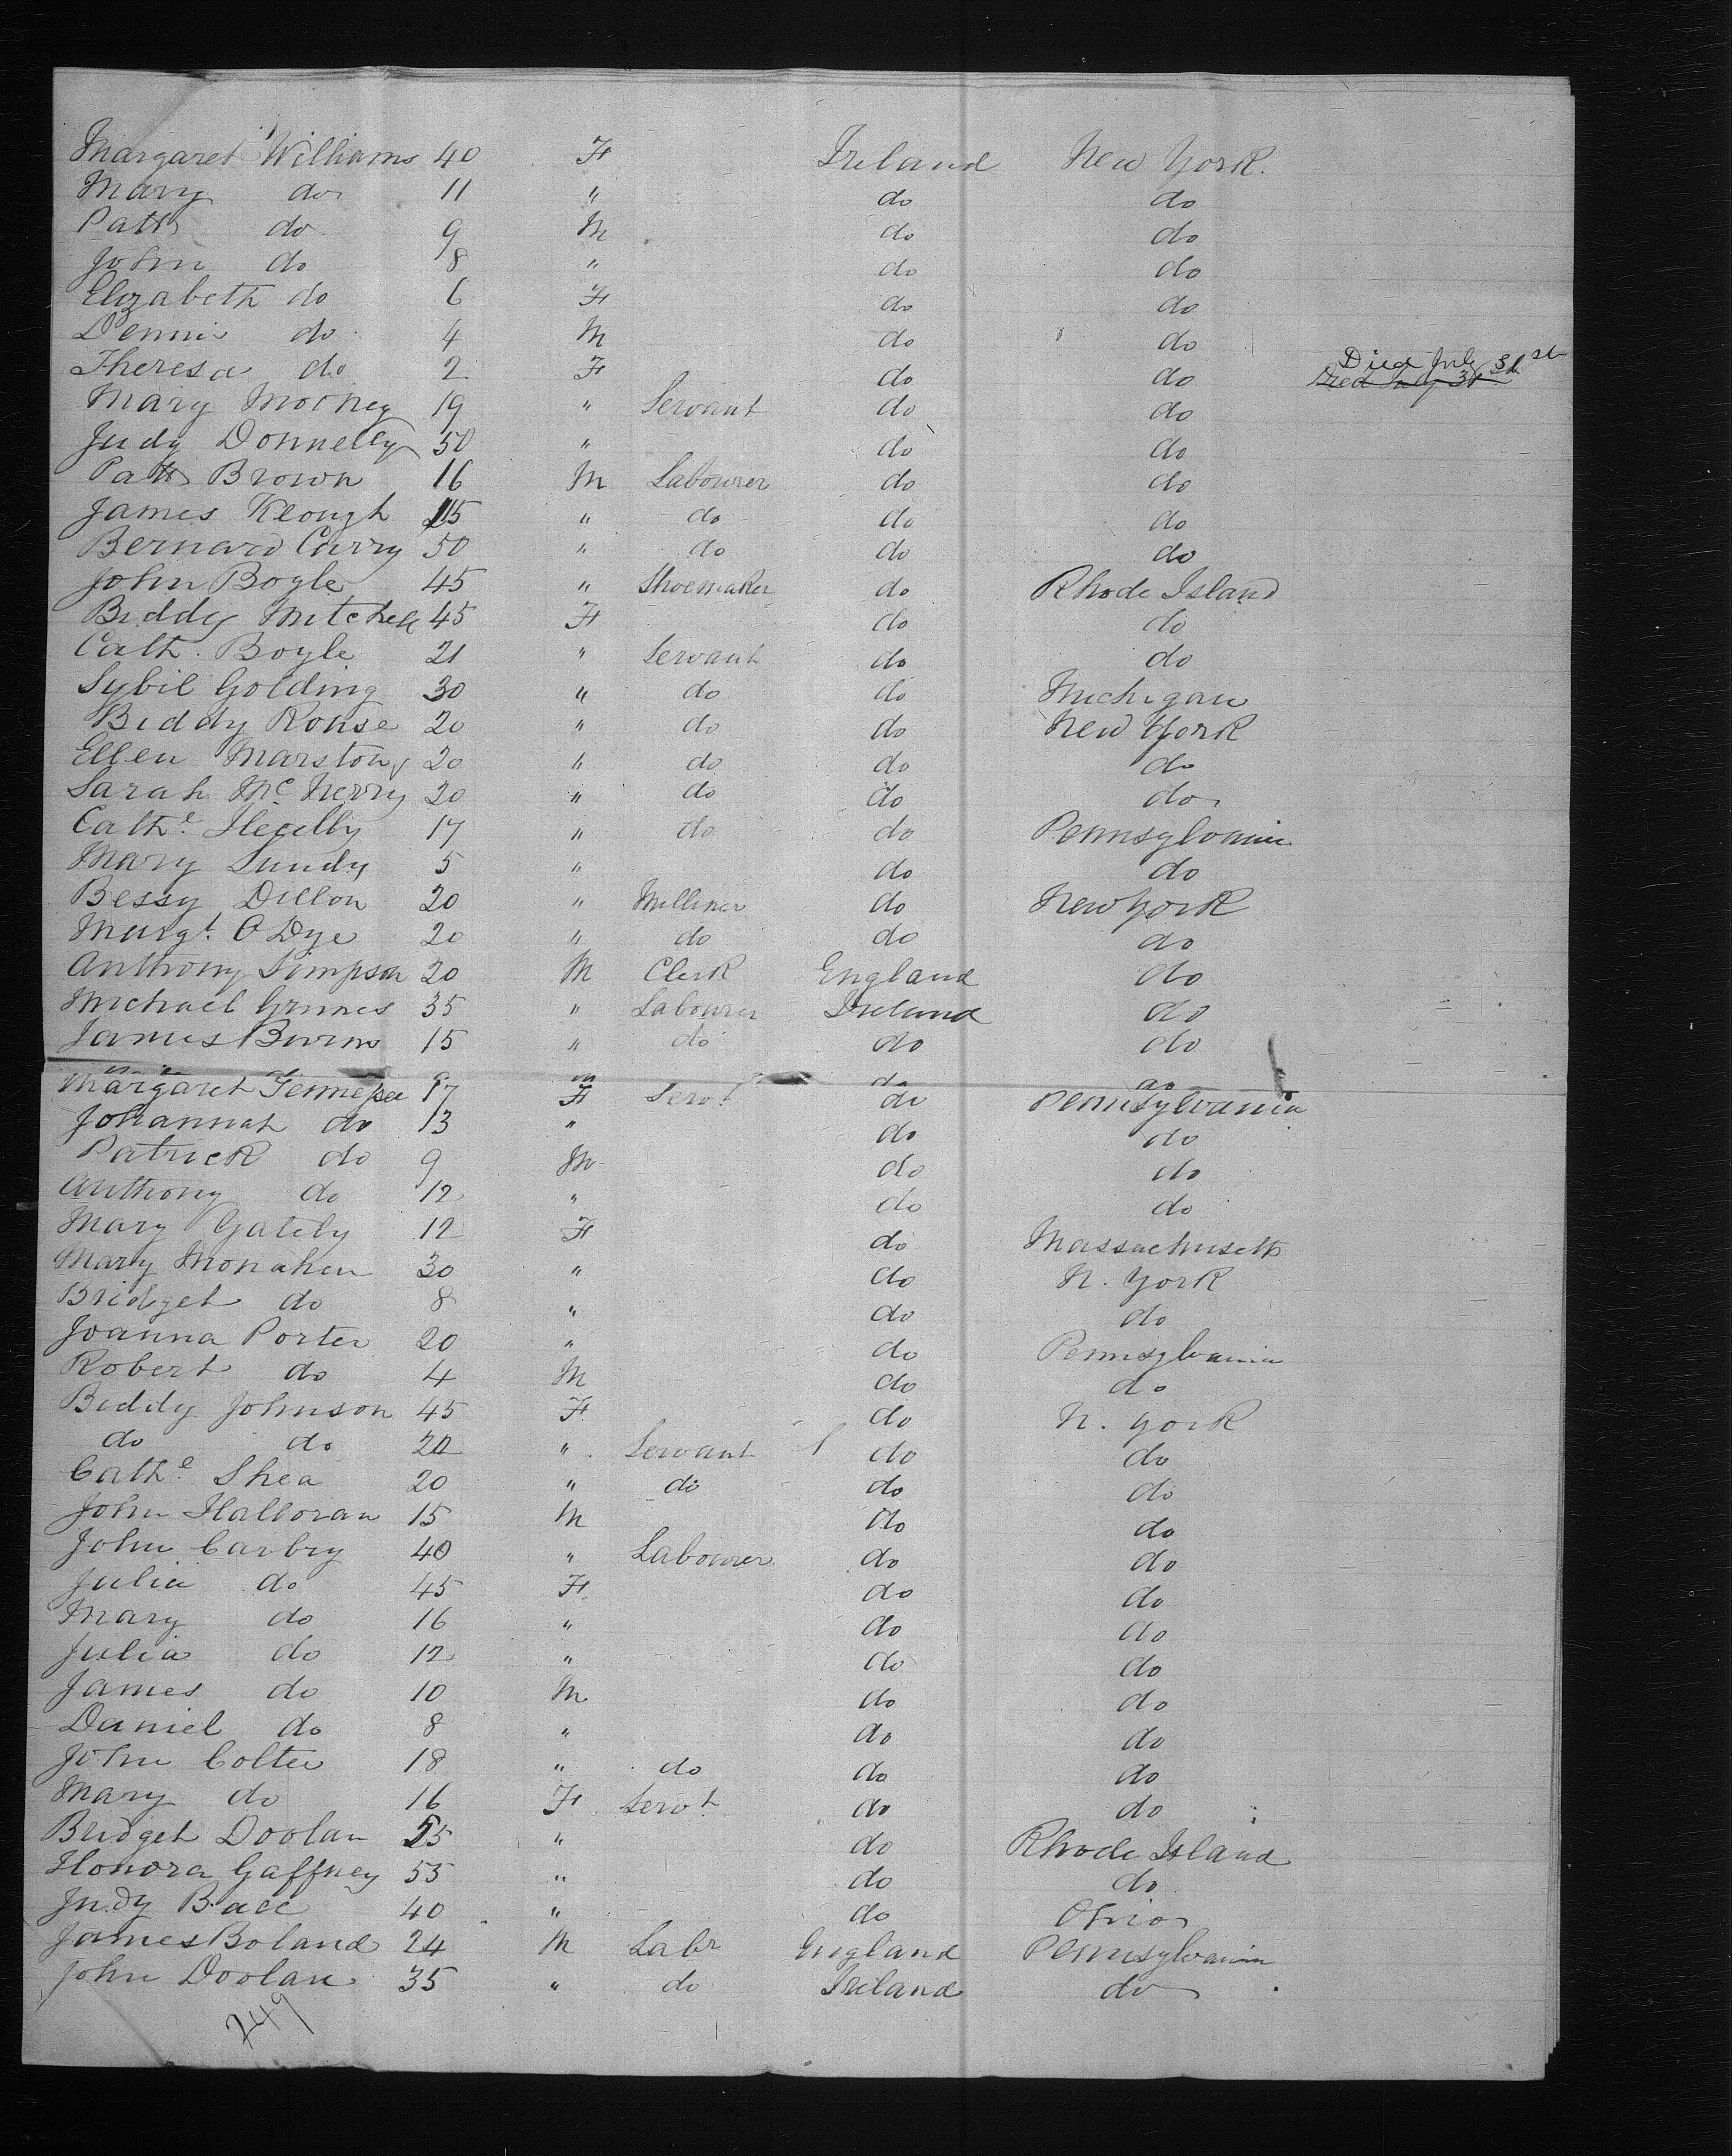 Margaret Williams 40 F Ireland New York.
Mary do 11 " do do
Patk do 9 M do do
John do 8 " do do
Elizabeth do 6 F do do
Dennis do 4 M do do
Theresa do 2 F do do Died July 31st
Mary Mooney 19 " Servant do do
Judy Donnelly 50 " do do
Patk Brown 16 M Labourer do do
James Keough 15 " do do do
Bernard Curry 50 " do do do
John Bogle 45 " Shoemaker do Rhode Island
Biddy Mitchell 45 F do do
Cath. Boyle 21 " Servant do do
Sybil Golding 30 " do do Michigan
Biddy Rouse 20 " do do New York
Ellen Marston 20 " do do do
Sarah McNerry 20 " do do do
Cathe. 17 " do do Pennsylvania
Mary Lundy 5 " do do
Bessy Dillon 20 " Milliner do New York
Margt. O Dye 20 " do do do
Anthony Simpson 20 M Clerk England do
Michael Grimes 35 " Labourer Ireland do
James Burns 15 " do do do
do do
Margaret 17 F Servt. do Pennsylvania
Johannah do 13 " do do
Patrick do 9 M do do
Anthony do 12 " do do
Mary Gately 12 F do Massachusetts
Mary Monahen 30 " do N. York
Bridget do 8 " do do
Joanna Porter 20 " do Pennsylvania
Robert do 4 M do do
Biddy Johnson 45 F do N. York
do do 20 " Servant do do
Cathe. Shea 20 " do do do
John Halloran 15 M do do
John Carbry 40 " Labourer do do
Julia do 45 F do do
Mary do 16 " do do
Julia do 12 " do do
James do 10 M do do
Daniel do 8 " do do
John Colter 18 " do do do
Mary do 16 F Servt do do
Bridget Doolan 55 " do Rhode Island
Honora Gaffney 55 " do do
Judy Ball 40 " do Ohio
James Boland 24 M Labr England Pennsylvania
John Doolan 35 " do Ireland do
249